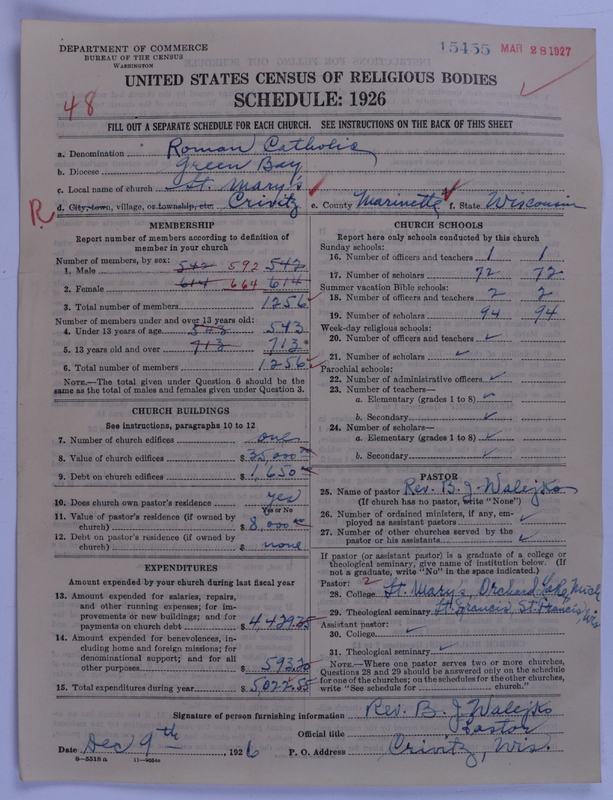 DEPARTMENT OF COMMERCE
BUREAU OF THE CENSUS
WASHINGTON
15455 MAR 28 1927
UNITED STATES CENSUS OF RELIGIOUS BODIES
48
SCHEDULE: 1926
FILL OUT A SEPARATE SCHEDULE FOR EACH CHURCH. SEE INSTRUCTIONS ON THE BACK OF THIS SHEET
a. Denomination Roman Catholic
b. Diocese Green Bay
c. Local name of church St. Mary's
R d. City, town, village, or township, etc. Crivitz e. County Marinette f. State Wisconsin
MEMBERSHIP
Report number of members according to definition of member in your church
Number of members, by sex:
1. Male 542 592 542
2. Female 614 664 614
3. Total number of members 1256
Number of members under and over 13 years old:
4. Under 13 years of age 543 543
5. 13 years old and over 713 713
6. Total number of members 1256
NOTE.—The total given under Question 6 should be the same as the total of males and females given under Question 3.
CHURCH BUILDINGS
See instructions, paragraphs 10 to 12
7. Number of church edifices one
8. Value of church edifices $ 35,000
9. Debt on church edifices $ 1,650
10. Does church own pastor's residence yes
Yes or No
11. Value of pastor's residence (if owned by church) $ 8,000
12. Debt on pastor's residence (if owned by church) $ none
EXPENDITURES
Amount expended by your church during last fiscal year
13. Amount expended for salaries, repairs, and other running expenses; for improvements or new buildings; and for payments on church debt $ 4,429.35
14. Amount expended for benevolences, including home and foreign missions; for denominational support; and for all other purposes $ 593.20
15. Total expenditures during year $ 5022.55
CHURCH SCHOOLS
Report here only schools conducted by this church
Sunday schools:
16. Number of officers and teachers 1 1
17. Number of scholars 72 72
Summer vacation Bible schools:
18. Number of officers and teachers 2 2
19. Number of scholars 94 94
Week-day religious schools:
20. Number of officers and teachers
21. Number of scholars
Parochial schools:
22. Number of administrative officers
23. Number of teachers—
a. Elementary (grades 1 to 8)
b. Secondary
24. Number of scholars—
a. Elementary (grades 1 to 8)
b. Secondary
PASTOR
25. Name of pastor Rev. B. J. Walejko
(If church has no pastor, write "None")
26. Number of ordained ministers, if any, employed as assistant pastors
27. Number of other churches served by the pastor or his assistants
If pastor (or assistant pastor) is a graduate of a college or theological seminary, give name of institution below. (If not a graduate, write "No" in the space indicated.)
Pastor: 2
28. College St. Mary's, Orchard Lake, Mich
29. Theological seminary St. Francis, St. Francis, Wis
Assistant pastor:
30. College
31. Theological seminary
NOTE.—Where one pastor serves two or more churches, Questions 28 and 29 should be answered only on the schedule for one of the churches; on the schedules for the other churches, write "See schedule for church."
Signature of person furnishing information Rev. B. J. Walejko
Official title Pastor
Date Dec 9th, 1926 P. O. Address Crivitz, Wis.
8—5518a